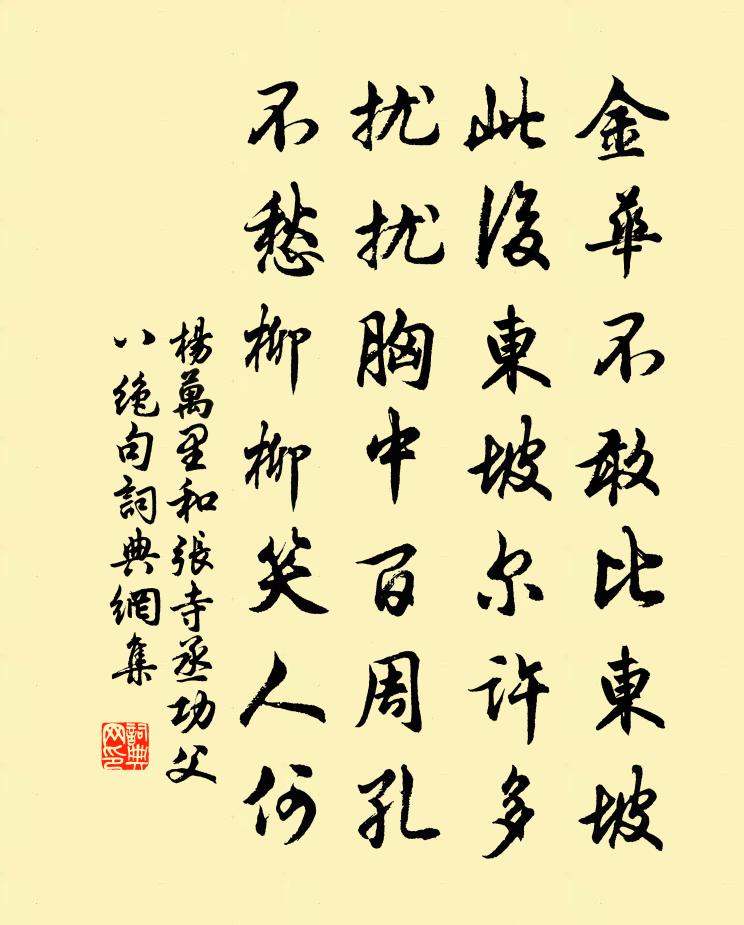 金華不敢比東坡
此後東坡尔許多
扰扰胸中百周孔
不愁柳柳笑人何
楊萬里和張寺丞功父
八绝句詞典網集
詞典网印